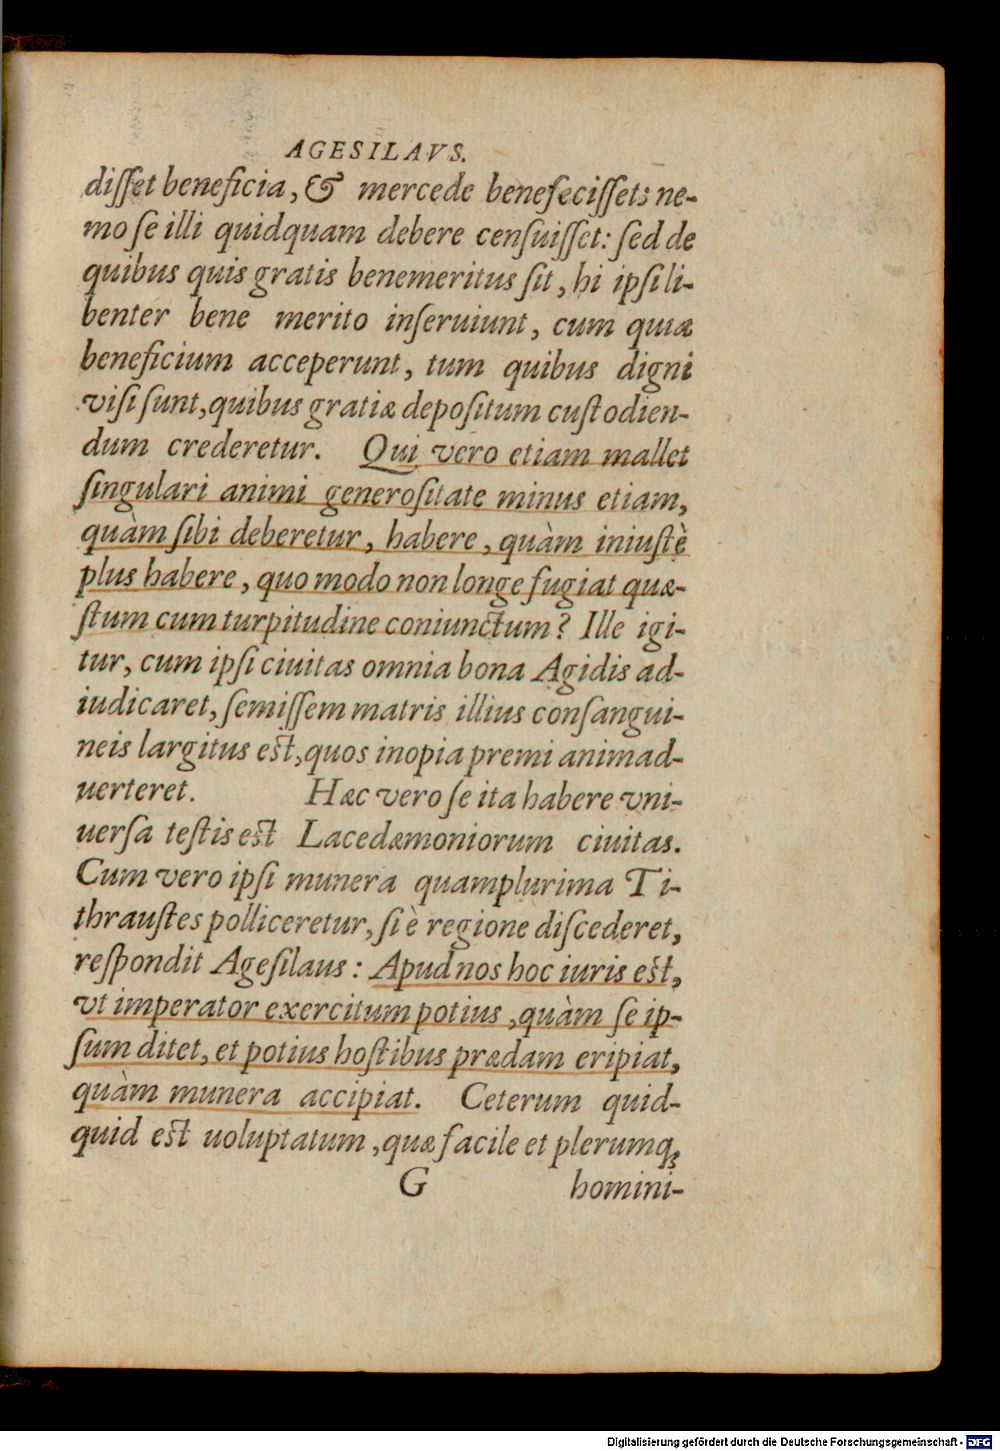 AGESILAVS.
diſſet beneficia, & mercede benefeciſſet: ne-
mo ſe illi quidquam debere cenſuiſſet: ſed de
quibus quis gratis benemeritus ſit, hi ipſi li-
benter bene merito inſeruiunt, cum quia
beneficium acceperunt, tum quibus digni
viſi ſunt, quibus gratiæ depoſitum cuſtodien-
dum crederetur. Qui vero etiam mallet
ſingulari animi generoſitate minus etiam,
quàm ſibi deberetur, habere, quàm iniuſtè
plus habere, quo modo non longe fugiat quæ-
ſtum cum turpitudine coniunctum? Ille igi-
tur, cum ipſi ciuitas omnia bona Agidis ad-
iudicaret, ſemiſſem matris illius conſangui-
neis largitus eſt, quos inopia premi animad-
uerteret. Hæc vero ſe ita habere vni-
uerſa teſtis eſt Lacedæmoniorum ciuitas.
Cum vero ipſi munera quamplurima Ti-
thrauſtes polliceretur, ſi è regione diſcederet,
reſpondit Ageſilaus: Apud nos hoc iuris eſt,
vt imperator exercitum potius, quàm ſe ip-
ſum ditet, et potius hoſtibus prædam eripiat,
quàm munera accipiat. Ceterum quid-
quid eſt uoluptatum, quæ facile et plerumq;
G homini-
Digitalisierung gefördert durch die Deutsche Forschungsgemeinschaft - DFG